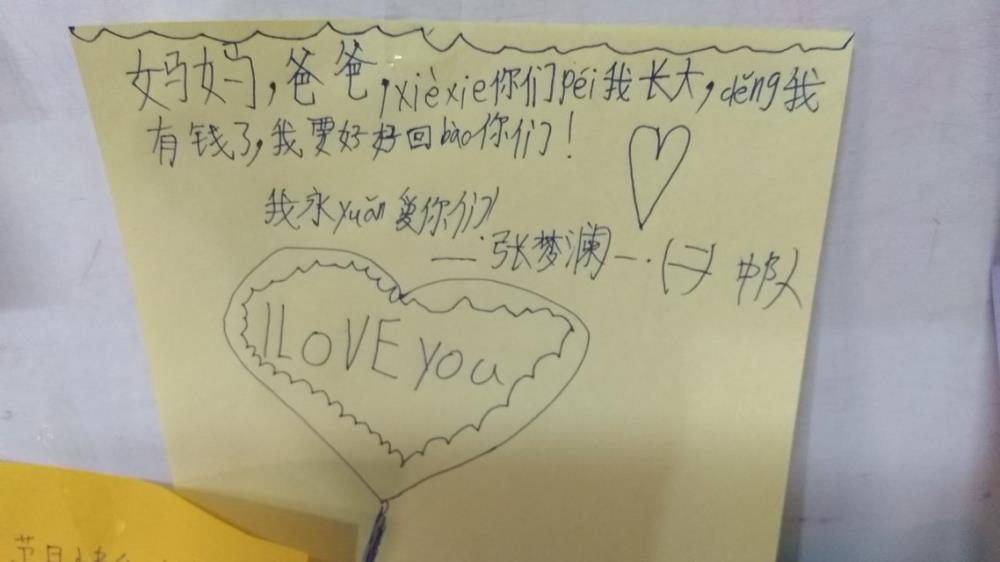 妈妈,爸爸,xièxie你们péi我长大,děng我
有钱了,我要好好回bào你们!
我永yuǎn爱你们!
—张梦澜一.(二)中队
I LOVE you
节日快